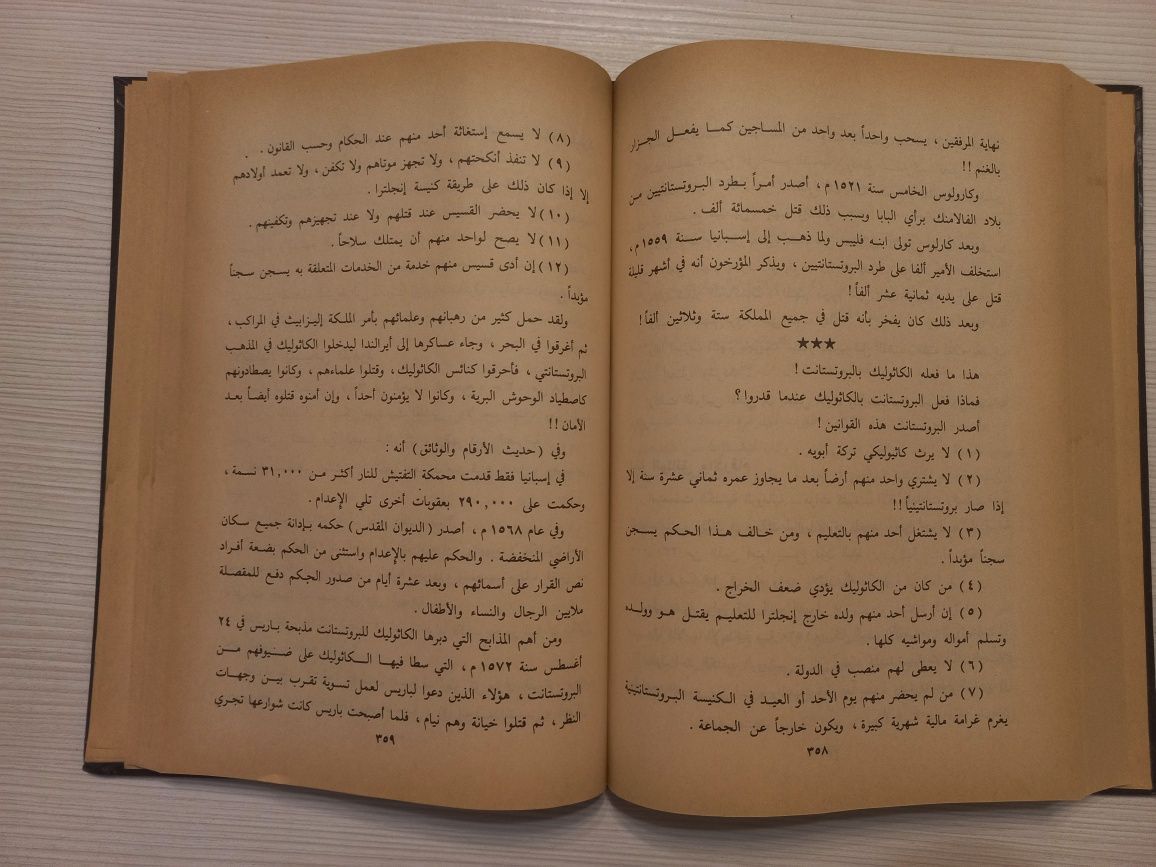 نهاية المرفقين ، يسحب واحداً بعد واحد من المساجين كما يفعل الجزار
بالغنم !!
وكارولوس الخامس سنة ١٥٢١ م ، أصدر أمراً بطرد البروتستانتيين من
بلاد الفالامنك برأي البابا وبسبب ذلك قتل خمسمائة ألف .
وبعد كارلوس تولى ابنه فليبس ولما ذهب إلى إسبانيا سنة ١٥٥٩ م ،
استخلف الأمير ألفا على طرد البروتستانتيين ، ويذكر المؤرخون أنه في أشهر قليلة
قتل على يديه ثمانية عشر ألفاً !
وبعد ذلك كان يفخر بأنه قتل في جميع المملكة ستة وثلاثين ألفاً !
★★★
هذا ما فعله الكاثوليك بالبروتستانت !
فماذا فعل البروتستانت بالكاثوليك عندما قدروا ؟
أصدر البروتستانت هذه القوانين !
(١) لا يرث كاثيوليكي تركة أبويه .
(٢) لا يشتري واحد منهم أرضاً بعد ما يجاوز عمره ثماني عشرة سنة إلا
إذا صار بروتستانتينياً !!
(٣) لا يشتغل أحد منهم بالتعليم ، ومن خالف هذا الحكم يسجن
سجناً مؤبداً .
(٤) من كان من الكاثوليك يؤدي ضعف الخراج .
(٥) إن أرسل أحد منهم ولده خارج إنجلترا للتعليم يقتل هو وولده
وتسلم أمواله ومواشيه كلها .
(٦) لا يعطى لهم منصب في الدولة .
(٧) من لم يحضر منهم يوم الأحد أو العيد في الكنيسة البروتستانتينية
يغرم غرامة مالية شهرية كبيرة ، ويكون خارجاً عن الجماعة .
٣٥٨
(٨) لا يسمع إستغاثة أحد منهم عند الحكام وحسب القانون .
(٩) لا تنفذ أنكحتهم ، ولا تجهز موتاهم ولا تكفن ، ولا تعمد أولادهم
إلا إذا كان ذلك على طريقة كنيسة إنجلترا .
(١٠) لا يحضر القسيس عند قتلهم ولا عند تجهيزهم وتكفينهم .
(١١) لا يصح لواحد منهم أن يمتلك سلاحاً .
(١٢) إن أدى قسيس منهم خدمة من الخدمات المتعلقة به يسجن سجناً
مؤبداً .
ولقد حمل كثير من رهبانهم وعلمائهم بأمر الملكة إليزابيث في المراكب ،
ثم أغرقوا في البحر ، وجاء عساكرها إلى أيرالندا ليدخلوا الكاثوليك في المذهب
البروتستانتي ، فأحرقوا كنائس الكاثوليك ، وقتلوا علماءهم ، وكانوا يصطادونهم
كاصطياد الوحوش البرية ، وكانوا لا يؤمنون أحداً ، وإن أمنوه قتلوه أيضاً بعد
الأمان !!
وفي ( حديث الأرقام والوثائق ) أنه :
في إسبانيا فقط قدمت محمكة التفتيش للنار أكثر من ٣١,٠٠٠ نسمة ،
وحكمت على ٢٩٠,٠٠٠ بعقوبات أخرى تلي الإعدام .
وفي عام ١٥٦٨ م ، أصدر ( الديوان المقدس ) حكمه بإدانة جميع سكان
الأراضي المنخفضة . والحكم عليهم بالإعدام واستثنى من الحكم بضعة أفراد
نص القرار على أسمائهم ، وبعد عشرة أيام من صدور الحكم دفع للمقصلة
ملايين الرجال والنساء والأطفال .
ومن أهم المذابح التي دبرها الكاثوليك للبروتستانت مذبحة باريس في ٢٤
أغسطس سنة ١٥٧٢ م ، التي سطا فيها الكاثوليك على ضيوفهم من
البروتستانت ، هؤلاء الذين دعوا لباريس لعمل تسوية تقرب بين وجهات
النظر ، ثم قتلوا خيانة وهم نيام ، فلما أصبحت باريس كانت شوارعها تجري
٣٥٩